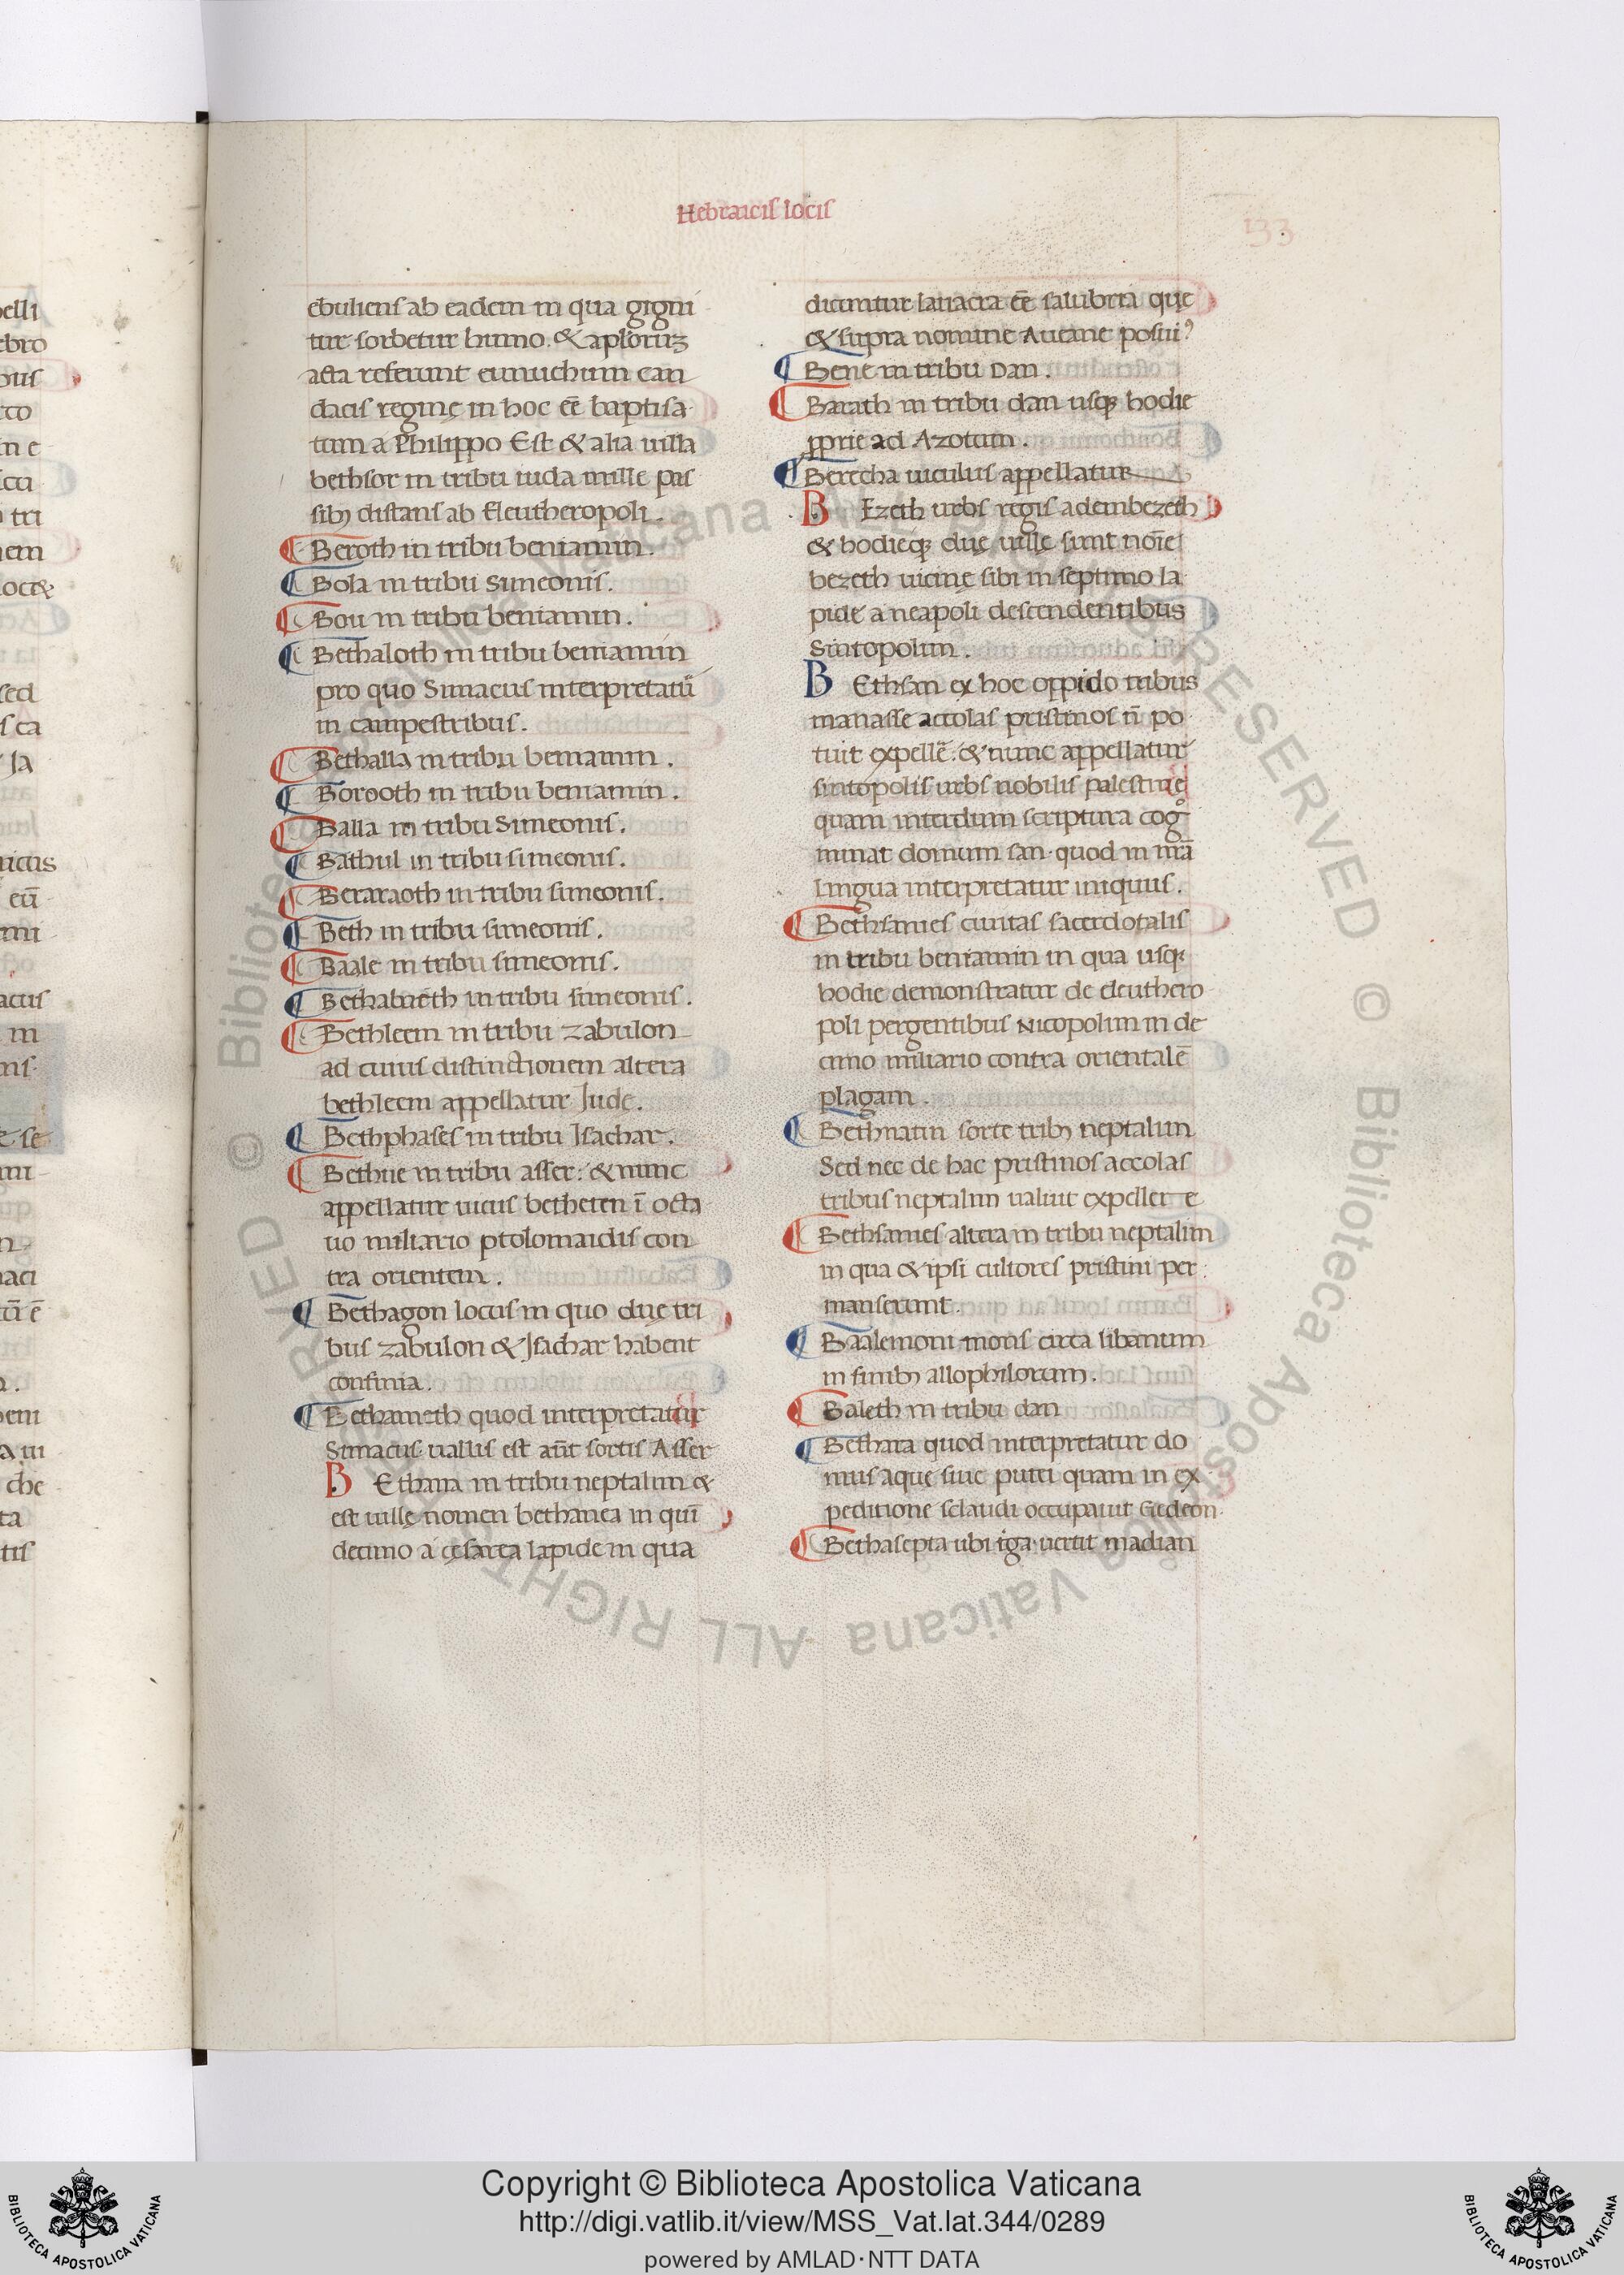 Hebraicis locis
133
ebuliens ab eadem in qua gigni
tur sorbetur humo. & aplorꝝ
acta referunt eunuchum can
dacis reginę in hoc eē baptisa
tum a Philippo Est & alia uilla
bethsor in tribu iuda mille pas
sibꝫ distans ab Eleutheropoli.
Beroth in tribu beniamin.
Bola in tribu Simeonis.
Bou in tribu beniamin.
Bethaloth in tribu beniamin
pro quo Simacus interpretatũ
in campestribus.
Bethalla in tribu beniamin.
Borooth in tribu beniamin.
Balla in tribu Simeonis.
Bathul in tribu simeonis.
Beraraoth in tribu simeonis.
Beth in tribu simeonis.
Baale in tribu simeonis.
Bethabneth in tribu simeonis.
Bethleem in tribu zabulon
ad cuius distinctionem altera
bethleem appellatur Iude.
Bethphases in tribu Isachar.
Bethne in tribu asser: & nunc
appellatur uicus betheten ī octa
uo miliario ptolomaidis con
tra orientem.
Bethagon locus in quo due tri
bus zabulon & Isachar habent
confinia.
Bethameth quod interpretatur
Simacus uallis est aūt sortis Asser
B Ethana in tribu neptalim &
est uillę nomen bethanea in quī
decimo a cęsarea lapide in qua
dicuntur lauacra eē salubria quę
& supra nomine Aneane posui?
Bene in tribu Dan.
Barath in tribu dan usqꝫ hodie
ꝓprie ad Azotum.
Berecha uiculus appellatur
B Ezeth urbs regis adembezeth
& hodieqꝫ duę uillę sunt noīe
bezeth uicinę sibi in septimo la
pide a neapoli descendentibus
Sintopolim.
B Ethsan ex hoc oppido tribus
manasse accolas pristinos ñ po
tuit expellē: & nunc appellatur
sintopolis urbs nobilis palestinę
quam interdum scriptura cogͦ
minat domum san· quod in nr̄a
lingua interpretatur iniquus.
Bethsames ciuitas sacerdotalis
in tribu beniamin in qua usqꝫ
hodie demonstratur de eleuthero
poli pergentibus Nicopolim in de
cimo miliario contra orientalē
plagam.
Bethnatin sorte tribꝫ neptalim
Sed nec de hac pristinos accolas
tribus neptalim ualuit expellere
Bethsames altera in tribu neptalim
in qua & ipsi cultores pristini per
manserunt.
Baalemoni mons circa libanum
in finibꝫ allophilorum.
Baleth in tribu dan
Bethara quod interpretatur do
mus aque siue putei quam in ex
peditione sclaudi occupauit Gedeon
Bethasepta ubi tga uertit madian
ALL RIGHTS RESERVED © Biblioteca Apostolica Vaticana
Copyright © Biblioteca Apostolica Vaticana
http://digi.vatlib.it/view/MSS_Vat.lat.344/0289
powered by AMLAD·NTT DATA
BIBLIOTECA APOSTOLICA VATICANA
BIBLIOTECA APOSTOLICA VATICANA